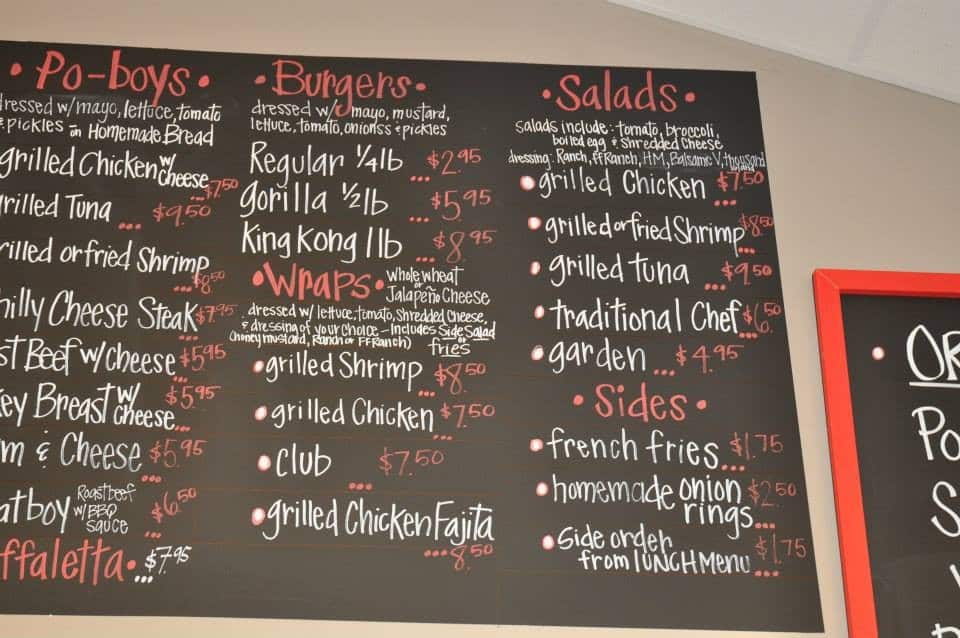 • Po-boys •
dressed w/mayo, lettuce, tomato
& pickles - on Homemade Bread
grilled Chicken w/ Cheese $7.50
grilled Tuna ... $9.50
grilled or fried Shrimp ... $8.50
Philly Cheese Steak $7.95
st Beef w/cheese $5.95
ey Breast w/ Cheese... $5.95
m & Cheese $5.95
at boy Roast beef w/BBQ sauce $6.50
ffaletta • ... $7.95
• Burgers •
dressed w/ mayo, mustard,
lettuce, tomato, onionss & pickles
Regular 1/4 lb ... $2.95
gorilla 1/2 lb ... $5.95
King Kong 1 lb ... $8.95
• Wraps • whole wheat
or
Jalapeño Cheese
dressed w/ lettuce, tomato, Shredded Cheese,
& dressing of your choice - includes Side Salad
(honey mustard, Ranch or FF Ranch) or fries
• grilled Shrimp ... $8.50
• grilled Chicken ... $7.50
• club ... $7.50
• grilled Chicken Fajita
... 8.50
• Salads •
Salads include: tomato, broccoli,
boiled egg & Shredded Cheese
dressing: Ranch, FF Ranch, H.M, Balsamic V, thousand
island
• grilled Chicken ... $7.50
• grilled or fried Shrimp ... $8.50
• grilled tuna ... $9.50
• traditional Chef ... $6.50
• garden ... $4.95
• Sides •
• french fries ... $1.75
• homemade onion
rings ... $2.50
• Side order
from LUNCH Menu ... $1.75
• OR
Po
S